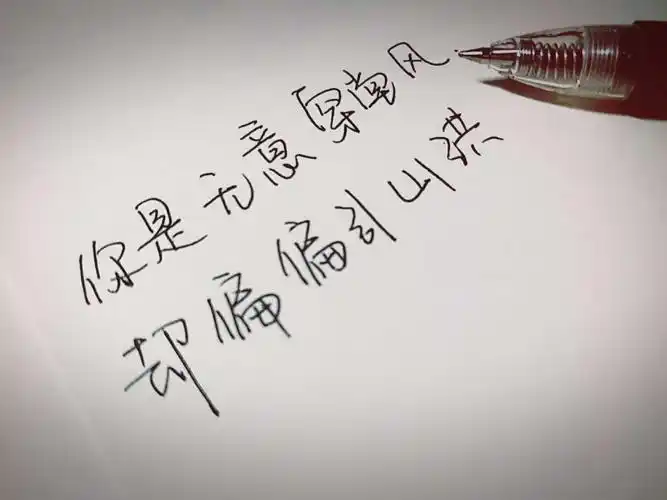 你是无意穿堂风
却偏偏引山洪